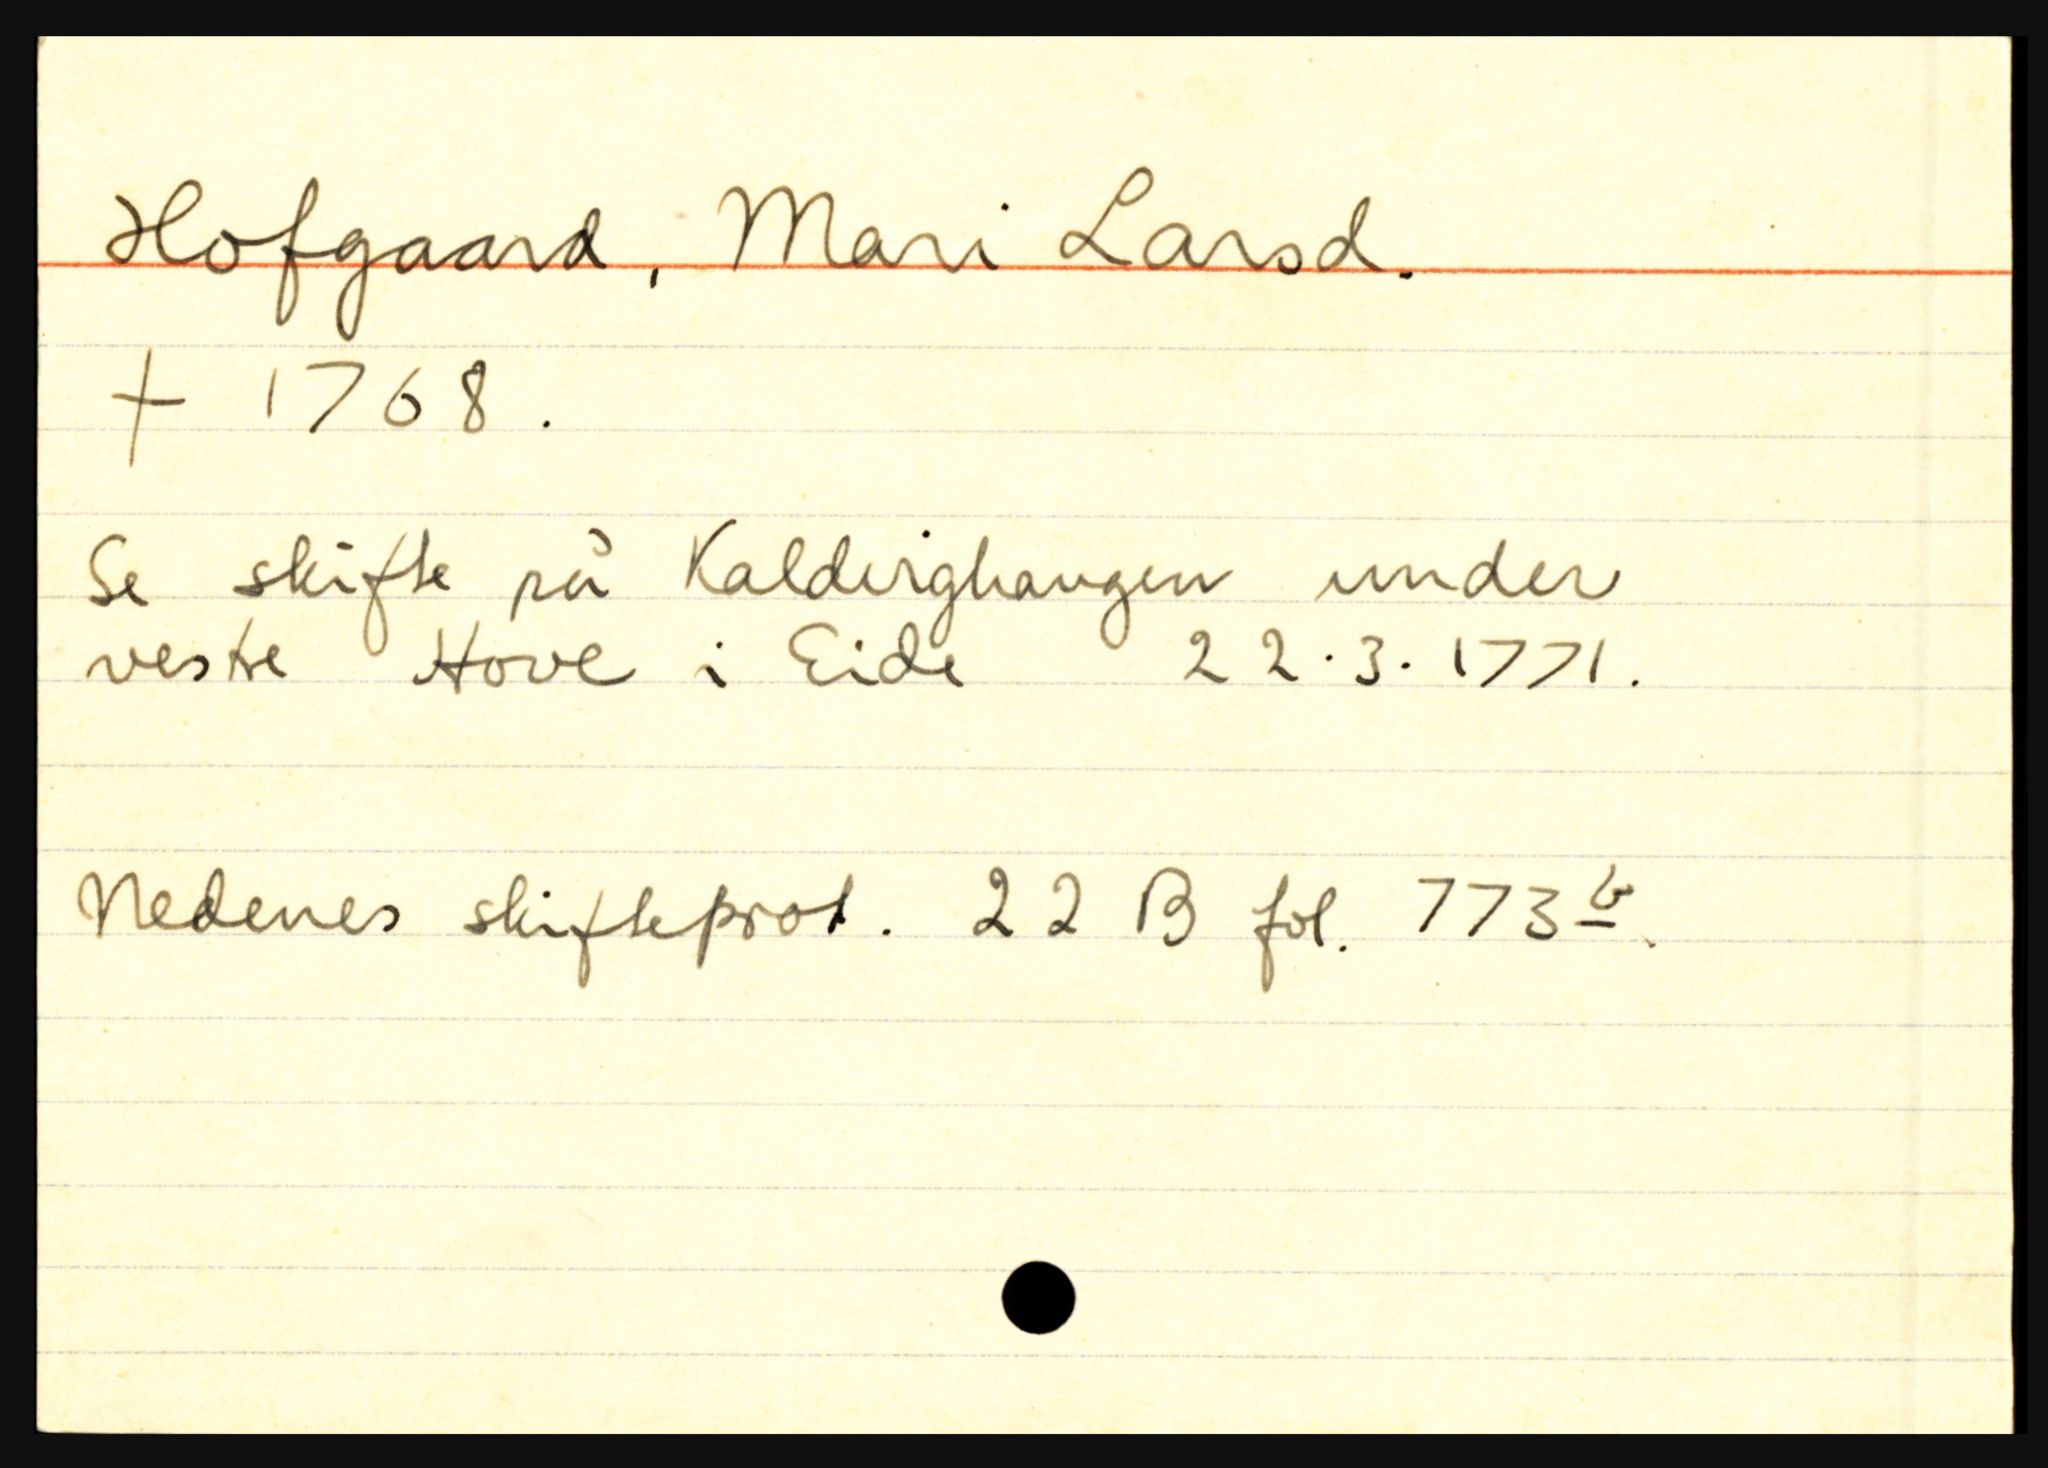 Hofgaard, Mari Larsd.
+ 1768.
Se skifte på Kaldvighaugen under
vestre Hove i Eide 22.3.1771.
Nedenes skifteprot. 22 B fol. 773 b.